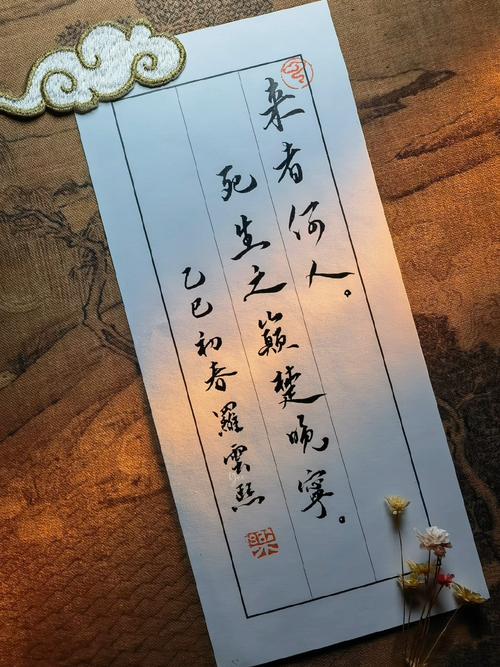 来者何人。
死生之巅楚晚宁。
乙巳初春羅雲熙